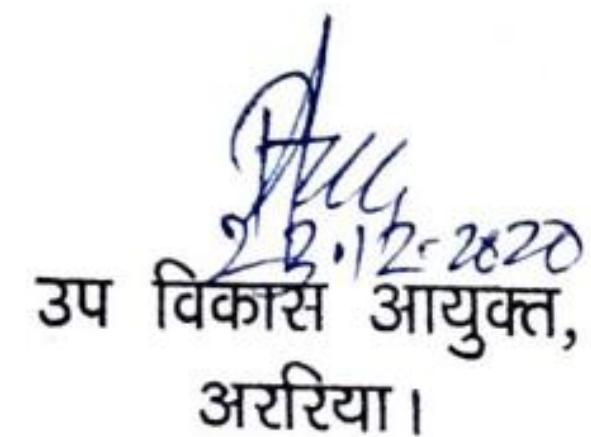 12-2020
उप विकास आयुक्त,
अररिया।